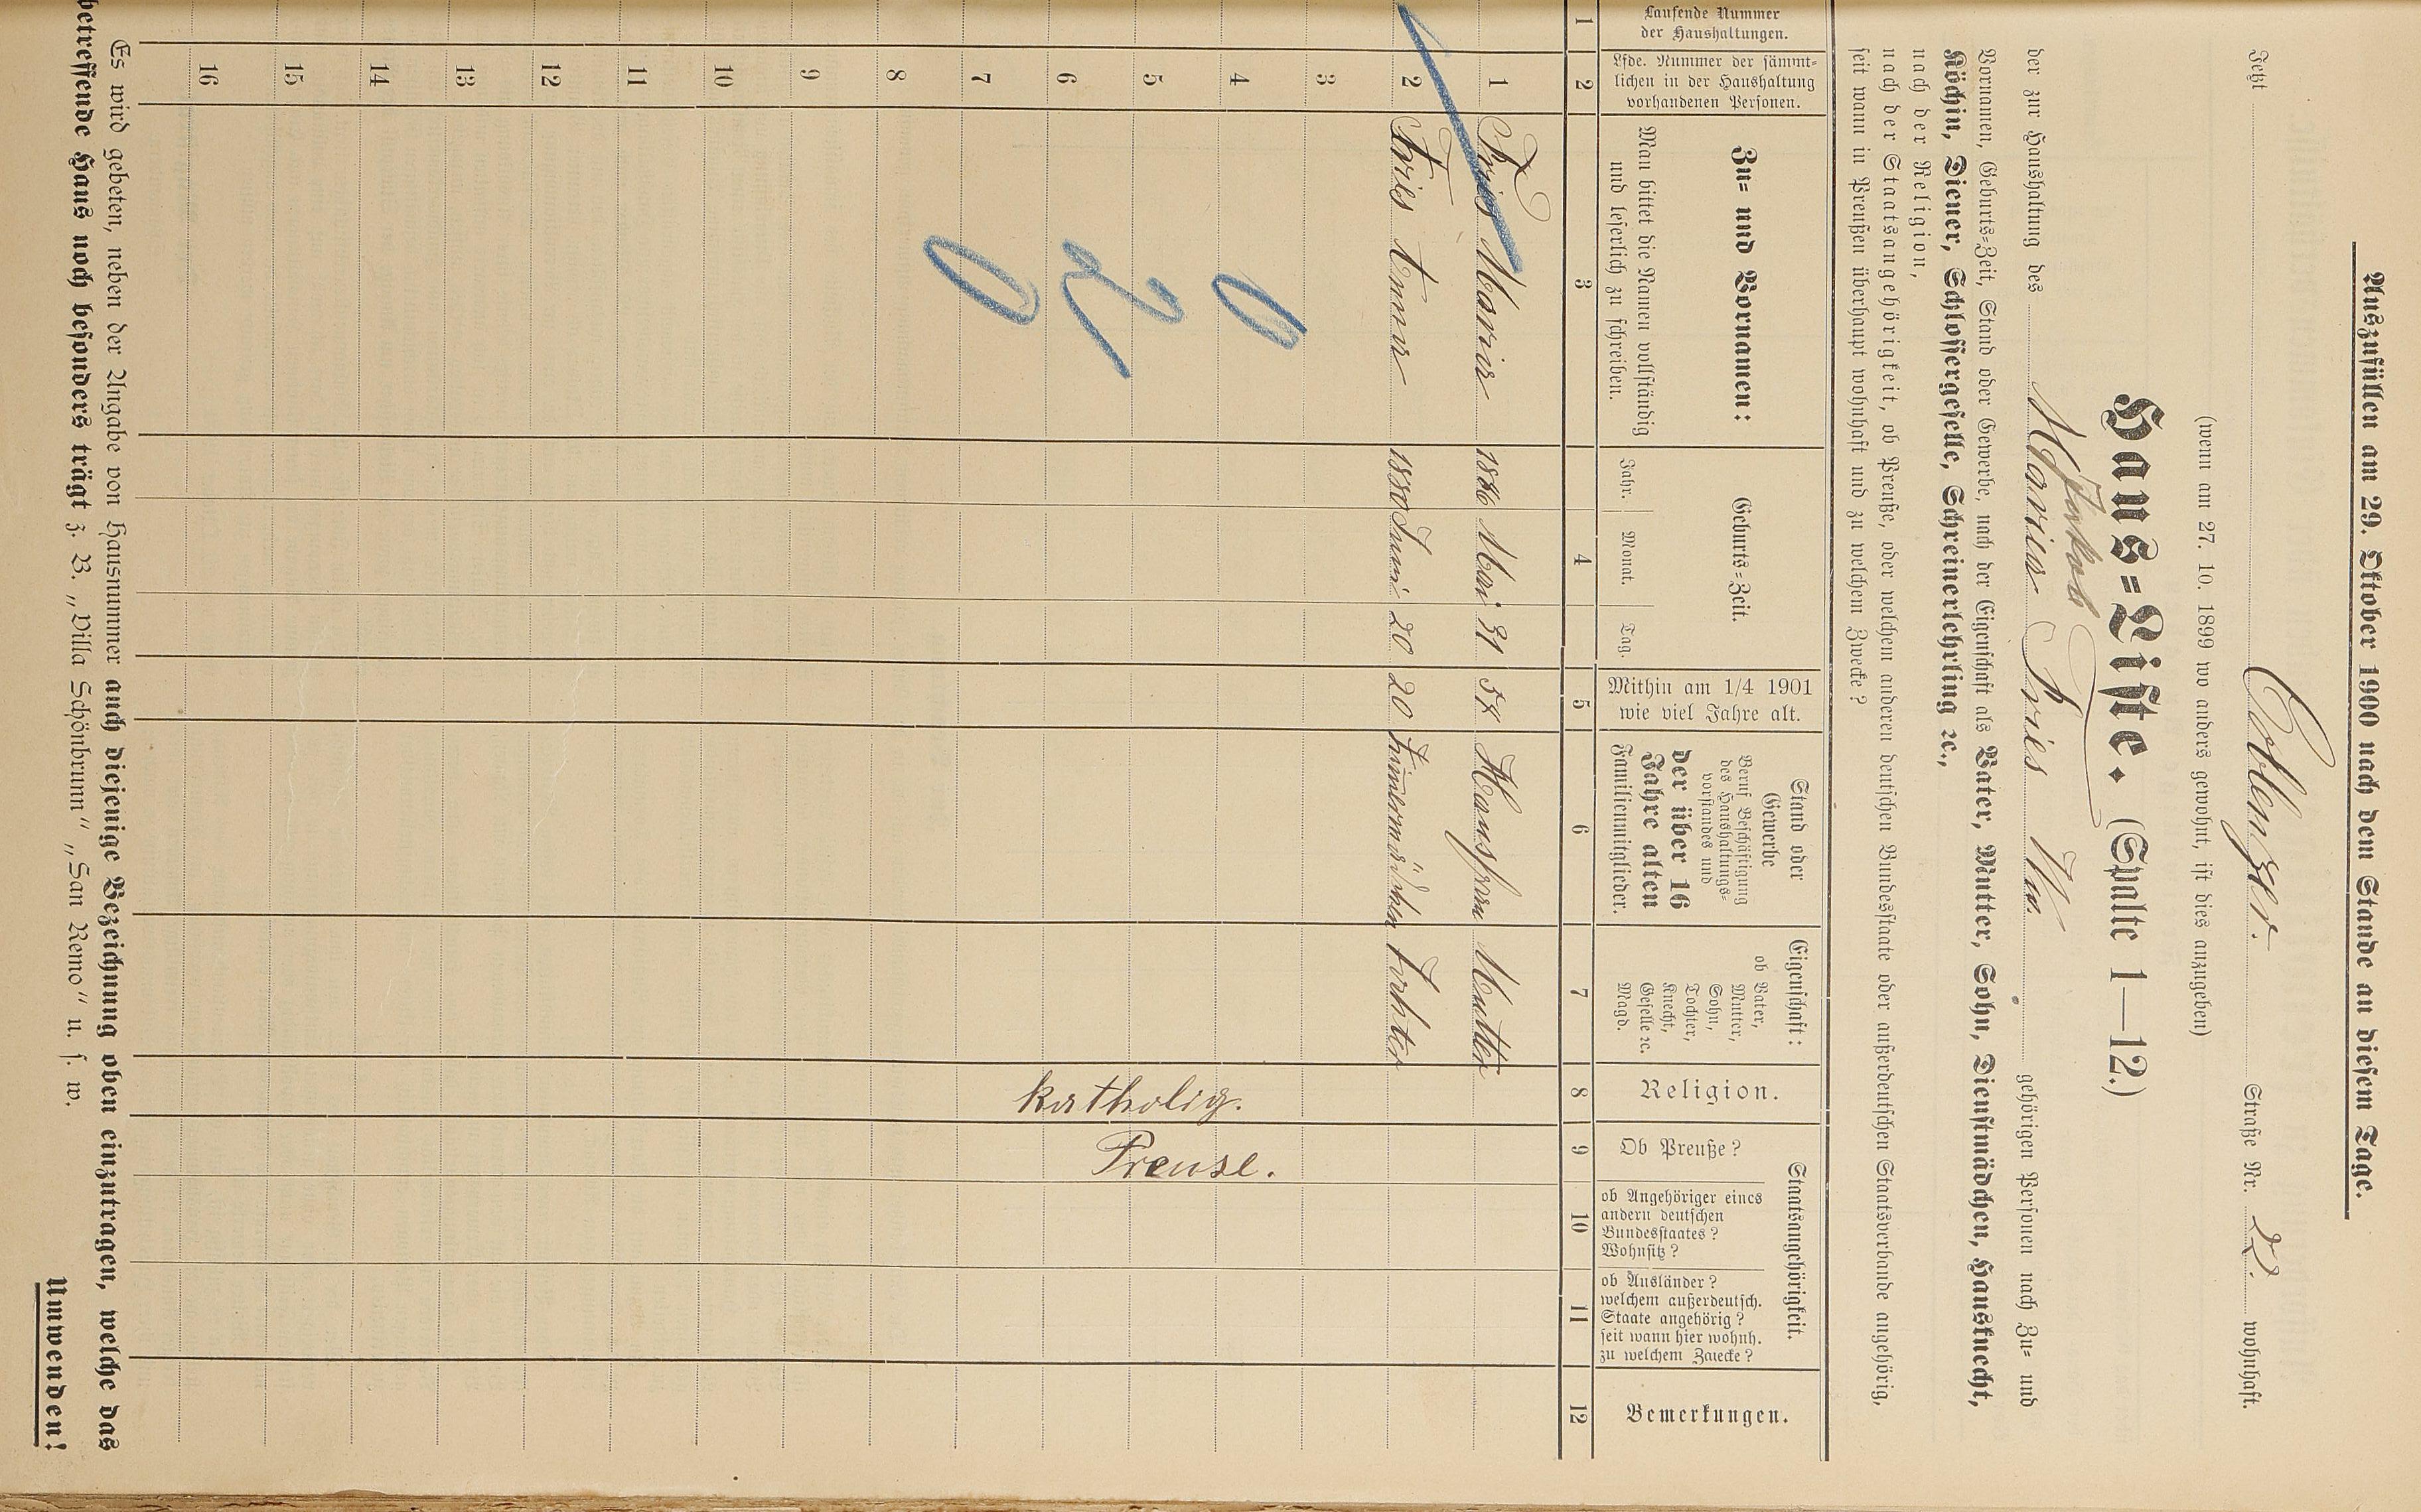 Auszufüllen am 29. Oktober 1900 nach dem Stande an diesem Tage.
Jetzt Coblenzer. Straße Nr. 22. wohnhaft.
(wenn am 27. 10. 1899 wo anders gewohnt, ist dies anzugeben)
Haus=Liste. (Spalte 1—12.)
Jakob
der zur Haushaltung des Maria Fries Ww. gehörigen Personen nach Zu= und
Vornamen, Geburts=Zeit, Stand oder Gewerbe, nach der Eigenschaft als Vater, Mutter, Sohn, Dienstmädchen, Hausknecht,
Köchin, Diener, Schlossergeselle, Schreinerlehrling ꝛc.,
nach der Religion,
nach der Staatsangehörigkeit, ob Preuße, oder welchem anderen deutschen Bundesstaate oder außerdeutschen Staatsverbande angehörig,
seit wann in Preußen überhaupt wohnhaft und zu welchem Zwecke?
Laufende Nummer
der Haushaltungen.
Lfde. Nummer der sämmt=
lichen in der Haushaltung
vorhandenen Personen.
Zu= und Vornamen:
Man bittet die Namen vollständig
und leserlich zu schreiben.
Geburts=Zeit.
Jahr. Monat. Tag.
Mithin am 1/4 1901
wie viel Jahre alt.
Stand oder
Gewerbe
Beruf Beschäftigung
des Haushaltungs=
vorstandes und
der über 16
Jahre alten
Familienmitglieder.
Eigenschaft:
ob Vater,
Mutter,
Sohn,
Tochter,
Knecht,
Geselle ꝛc.
Magd.
Religion.
Staatsangehörigkeit.
Ob Preuße?
ob Angehöriger eines
andern deutschen
Bundesstaates?
Wohnsitz?
ob Ausländer?
welchem außerdeutsch.
Staate angehörig?
seit wann hier wohnh.
zu welchem Zwecke?
Bemerkungen.
1 2 3 4 5 6 7 8 9 10 11 12
1 Fries Maria Mai 31 Hausfrau Mutter
2 Fries Anna 1880 Juni 20 20 Zimmermädchen Tochter
3
4
5
6
7
8
9
10
11
12
13
14
15
16
0 2 0
katholig.
Preuse.
Es wird gebeten, neben der Angabe von Hausnummer auch diejenige Bezeichnung oben einzutragen, welche das
betreffende Haus noch besonders trägt z. B. „Villa Schönbrunn" „San Remo" u. s. w.
Umwenden!